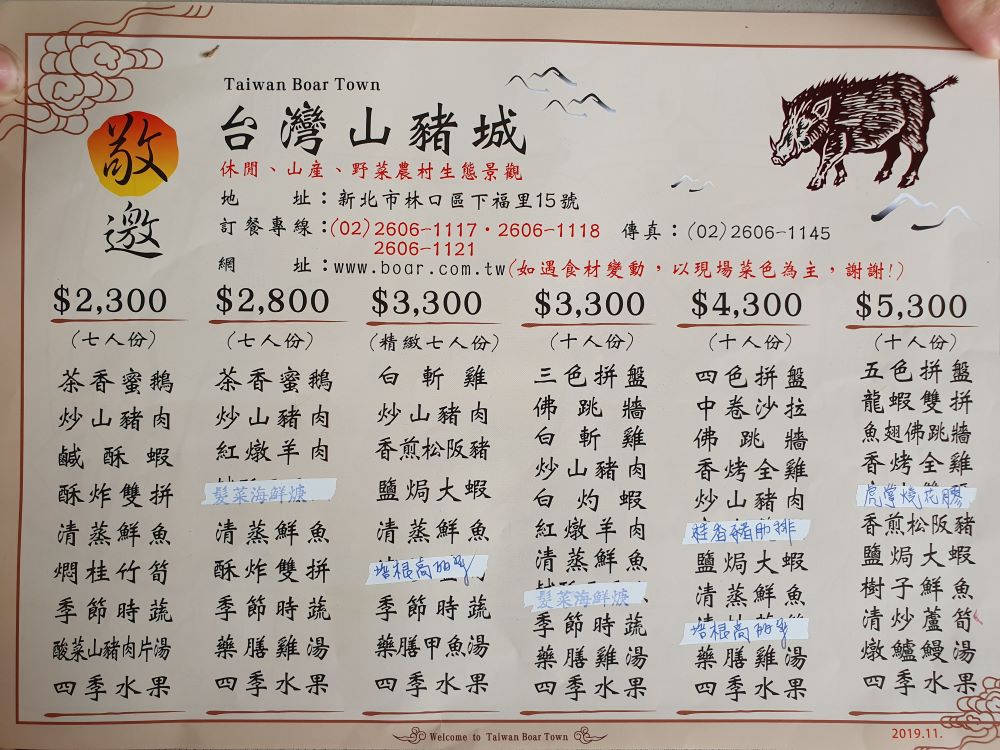 Taiwan Boar Town
敬邀
台灣山豬城
休閒、山產、野菜農村生態景觀
地 址：新北市林口區下福里15號
訂餐專線：(02)2606-1117・2606-1118 傳真：(02)2606-1145
2606-1121
網 址：www.boar.com.tw(如遇食材變動，以現場菜色為主，謝謝!)
$2,300
(七人份)
茶香蜜鵝
炒山豬肉
鹹酥蝦
酥炸雙拼
清蒸鮮魚
燜桂竹筍
季節時蔬
酸菜山豬肉片湯
四季水果
$2,800
(七人份)
茶香蜜鵝
炒山豬肉
紅燉羊肉
髮菜海鮮焿
清蒸鮮魚
酥炸雙拼
季節時蔬
藥膳雞湯
四季水果
$3,300
(精緻七人份)
白斬雞
炒山豬肉
香煎松阪豬
鹽焗大蝦
清蒸鮮魚
培根高麗菜
季節時蔬
藥膳甲魚湯
四季水果
$3,300
(十人份)
三色拼盤
佛跳牆
白斬雞
炒山豬肉
白灼蝦
紅燉羊肉
清蒸鮮魚
髮菜海鮮焿
季節時蔬
藥膳雞湯
四季水果
$4,300
(十人份)
四色拼盤
中卷沙拉
佛跳牆
香烤全雞
炒山豬肉
桂香豬肋排
鹽焗大蝦
清蒸鮮魚
培根高
藥膳雞湯
四季水果
$5,300
(十人份)
五色拼盤
龍蝦雙拼
魚翅佛跳牆
香烤全雞
虎掌燒花膠
香煎松阪豬
鹽焗大蝦
樹子鮮魚
清炒蘆筍
燉鱸鰻湯
四季水果
Welcome to Taiwan Boar Town
2019.11.